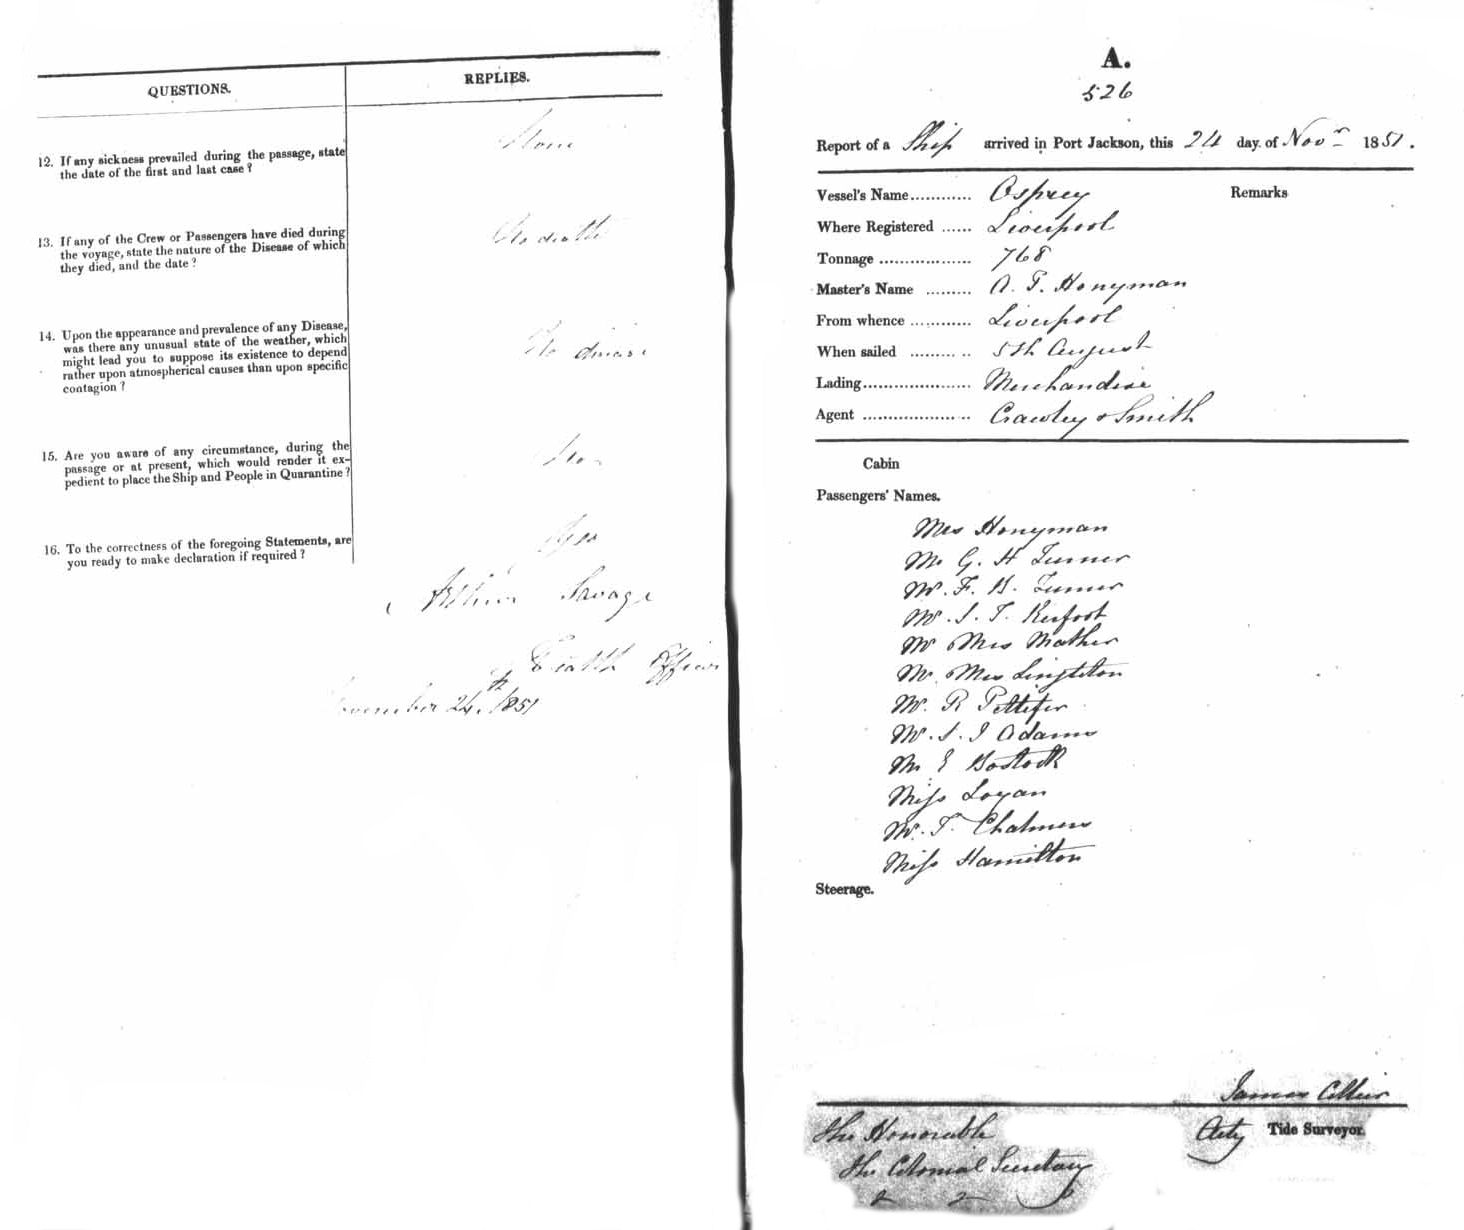 QUESTIONS.
REPLIES.
12. If any sickness prevailed during the passage, state
the date of the first and last case ?
None
13. If any of the Crew or Passengers have died during
the voyage, state the nature of the Disease of which
they died, and the date ?
No death
14. Upon the appearance and prevalence of any Disease,
was there any unusual state of the weather, which
might lead you to suppose its existence to depend
rather upon atmospherical causes than upon specific
contagion ?
No disease
15. Are you aware of any circumstance, during the
passage or at present, which would render it ex-
pedient to place the Ship and People in Quarantine ?
No
16. To the correctness of the foregoing Statements, are
you ready to make declaration if required ?
Yes
Arthur Savage
Health Officer
November 24th 1851
A.
526
Report of a Ship arrived in Port Jackson, this 24 day of Novr 1851.
Vessel's Name............ Osprey
Remarks
Where Registered ...... Liverpool
Tonnage .................. 768
Master's Name ......... A. T. Honyman
From whence ............ Liverpool
When sailed ............ 5th August
Lading..................... Merchandise
Agent ..................... Crawley & Smith
Cabin
Passengers' Names.
Mrs Honyman
Mr G. H Turner
Mr. F. H. Turner
Mr. J. T. Kerfoot
Mr Mrs Mather
Mr. Mrs Singleton
Mr. R Pettifer
Mr. J. J Adams
Mr E Bostock
Miss Logan
Mr. T. Chalmers
Miss Hamilton
Steerage.
James Collier
Actg Tide Surveyor.
The Honorable
The Colonial Secretary